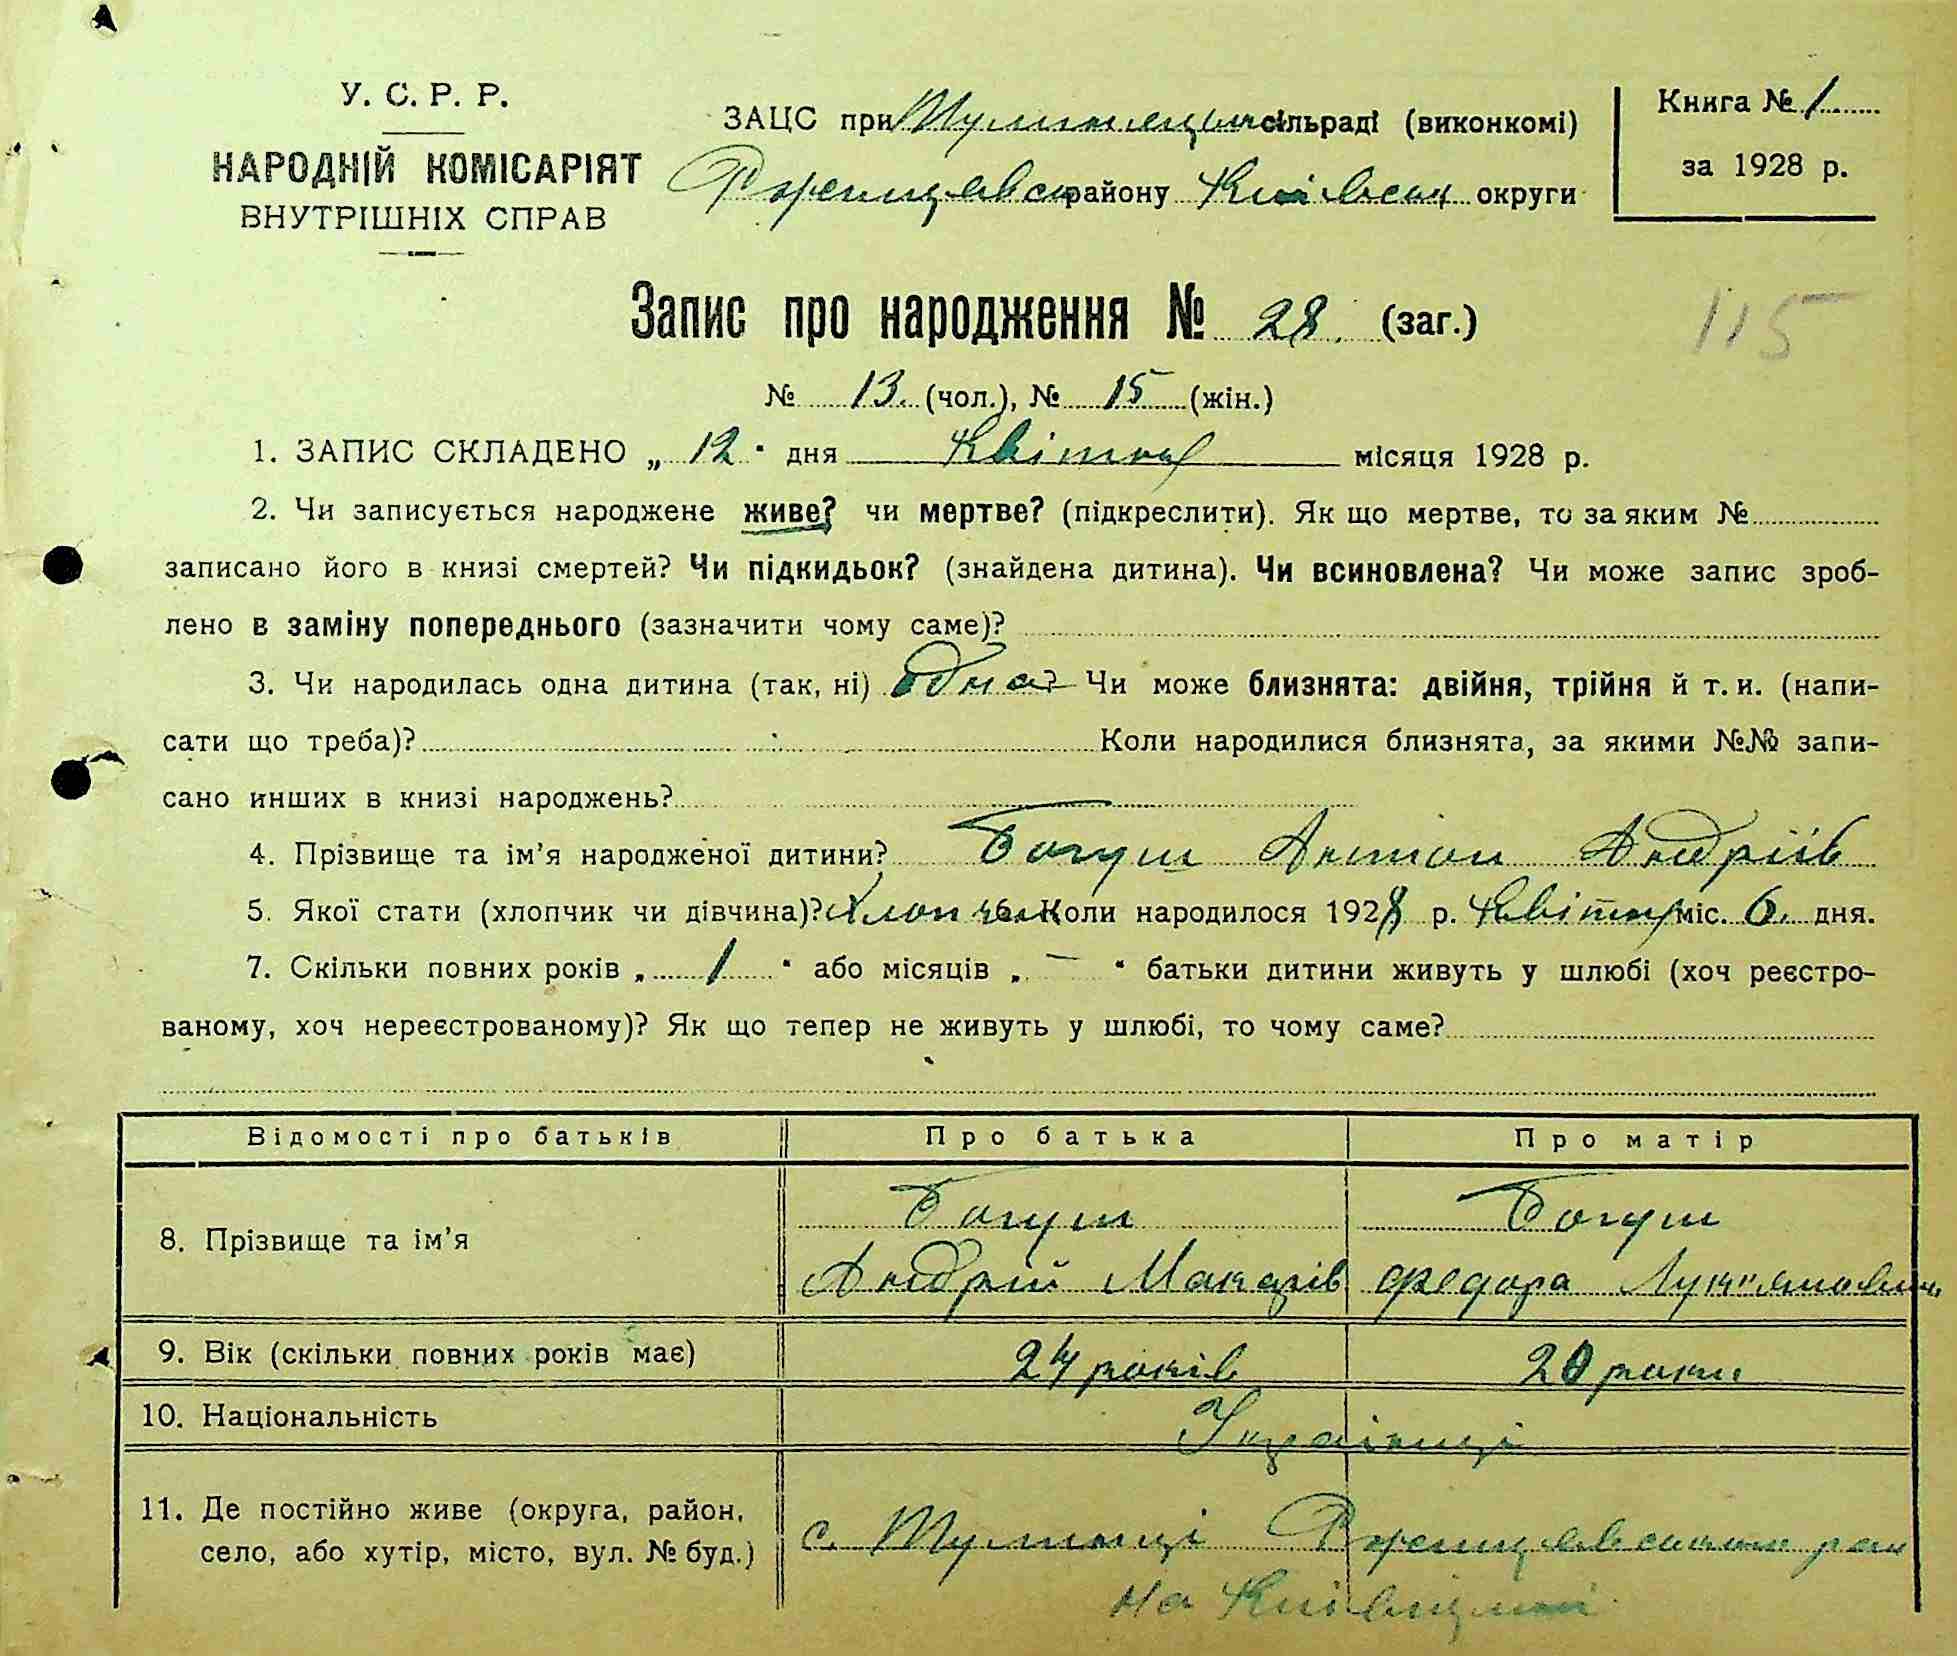 У. С. Р. Р.
НАРОДНІЙ КОМІСАРІЯТ
ВНУТРІШНІХ СПРАВ
ЗАЦС при сільраді (виконкомі)
району Київськ округи
Книга № 1
за 1928 р.
Запис про народження № 28. (заг.)
115
№ 13. (чол.), № 15 (жін.)
1. ЗАПИС СКЛАДЕНО „ 12 " дня Квітня місяця 1928 р.
2. Чи записується народжене живе? чи мертве? (підкреслити). Як що мертве, то за яким №
записано його в книзі смертей? Чи підкидьок? (знайдена дитина). Чи всиновлена? Чи може запис зроб-
лено в заміну попереднього (зазначити чому саме)?
3. Чи народилась одна дитина (так, ні) Одна? Чи може близнята: двійня, трійня й т. и. (напи-
сати що треба)? Коли народилися близнята, за якими №№ запи-
сано инших в книзі народжень?
4. Прізвище та ім'я народженої дитини? Богуш Антон Андріїв
5. Якої стати (хлопчик чи дівчина)? Хлопчик Коли народилося 1928 р. Квітня міс. 6. дня.
7. Скільки повних років „ 1 " або місяців „ — " батьки дитини живуть у шлюбі (хоч реєстро-
ваному, хоч нереєстрованому)? Як що тепер не живуть у шлюбі, то чому саме?
Відомості про батьків Про батька Про матір
8. Прізвище та ім'я Богуш Богуш
Андрій Макарів Федора
9. Вік (скільки повних років має) 24 років 20 роки
10. Національність Українці
11. Де постійно живе (округа, район,
село, або хутір, місто, вул. № буд.)
с. рай
на Київщині